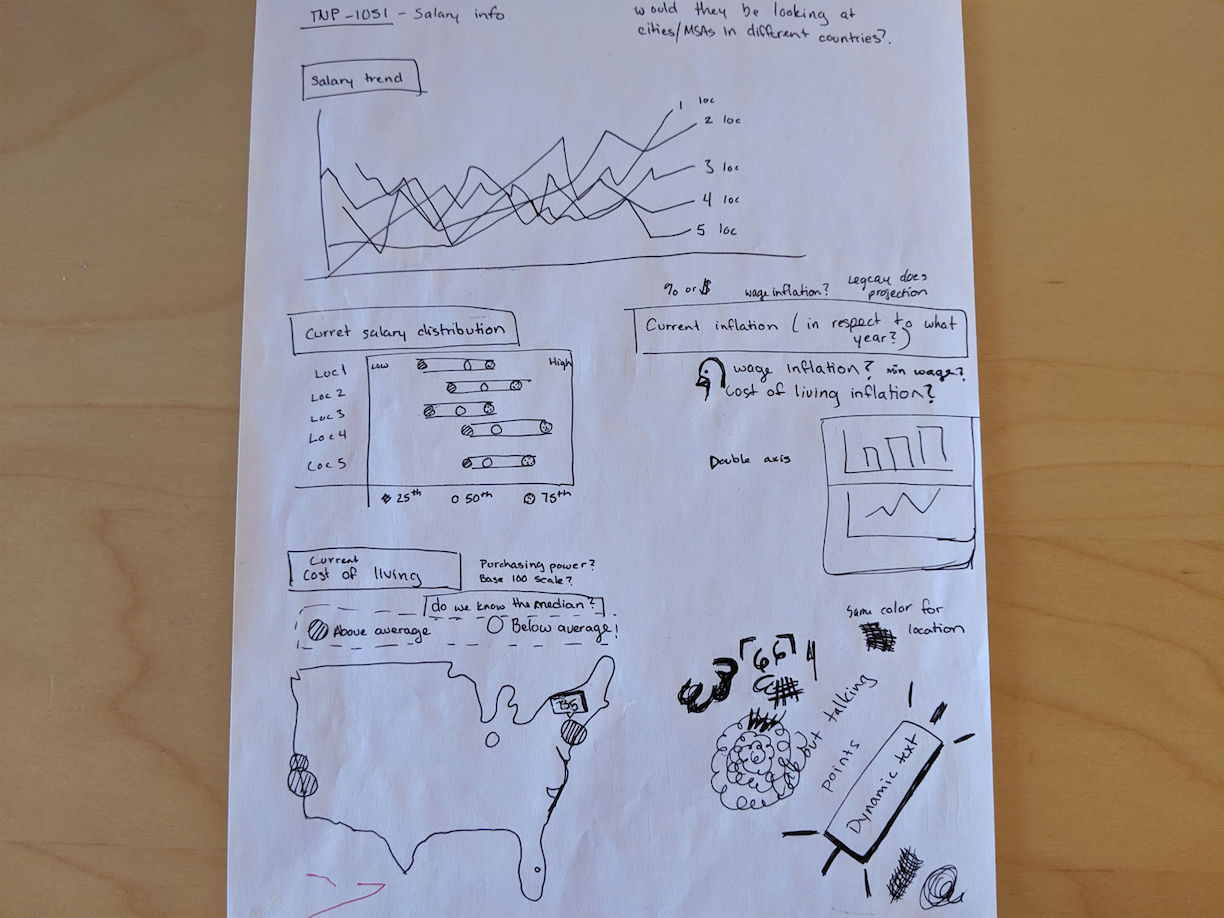 TNP-1051 - Salary info
would they be looking at
cities/MSAs in different countries?
Salary trend
1 loc
2 loc
3 loc
4 loc
5 loc
% or $
wage inflation?
Legcay does
projection
Curret salary distribution
Loc 1
Loc 2
Loc 3
Loc 4
Loc 5
Low
High
25th
50th
75th
Current inflation (in respect to what
year?)
wage inflation? min wage?
Cost of living inflation?
Double axis
Current
Cost of living
Purchasing power?
Base 100 scale?
do we know the median?
Above average
Below average!
Same color for
location
but talking
points
Dynamic text